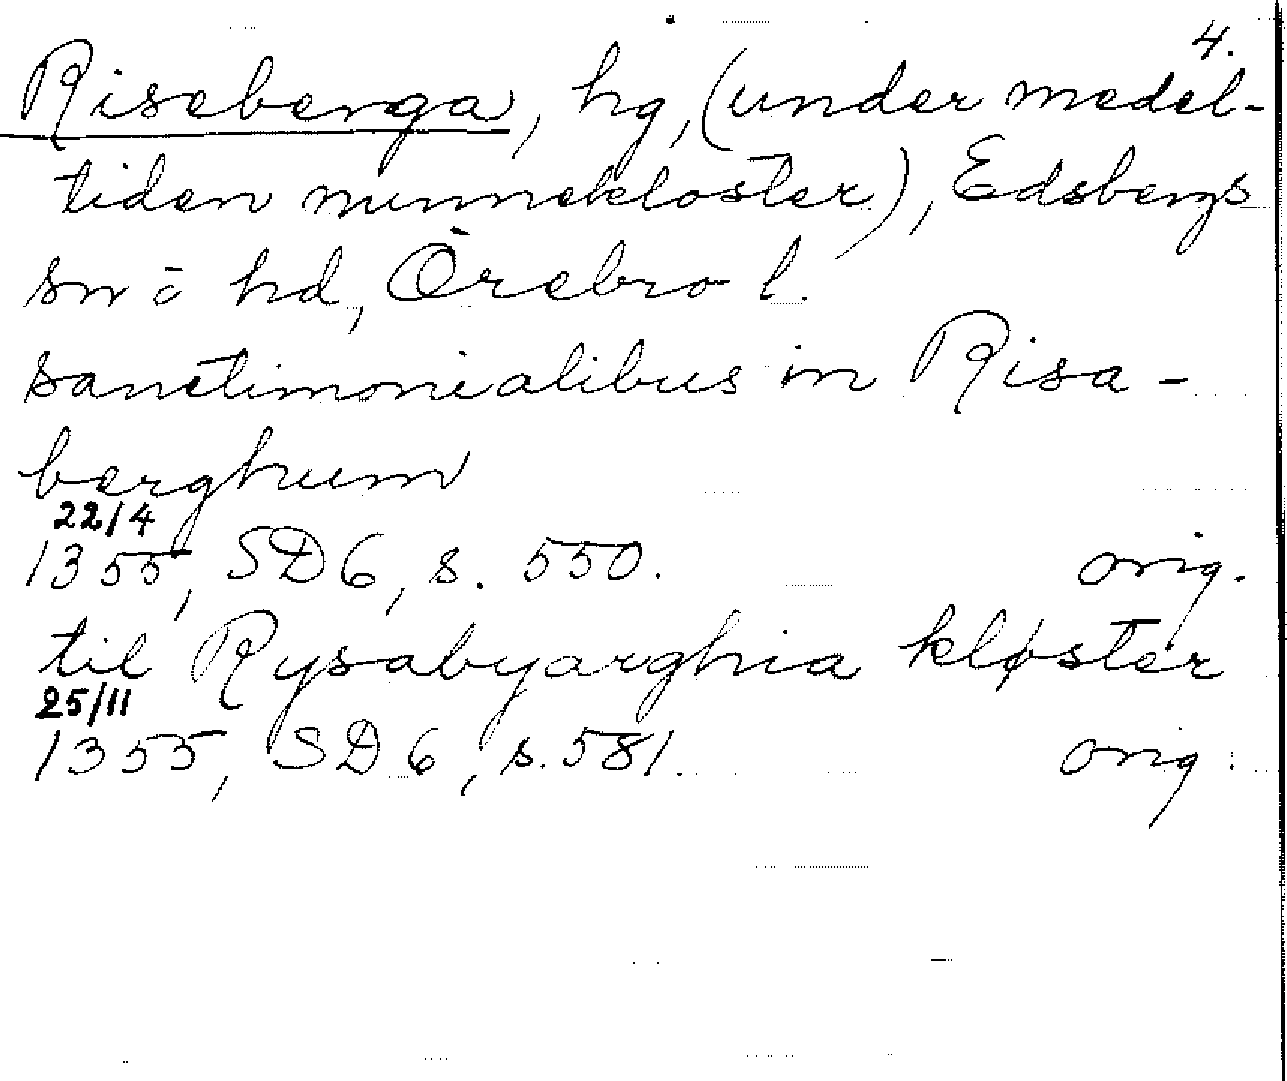 4.
Riseberga, hg, (under medel-
tiden nunnekloster), Edsbergs
sn o hd, Örebro l.
sanctimonialibus in Risa-
berghum
22/4
1355, SD 6, s. 550. orig.
til Rysabyarghia kløster
25/11
1355, SD 6, s. 581. orig.